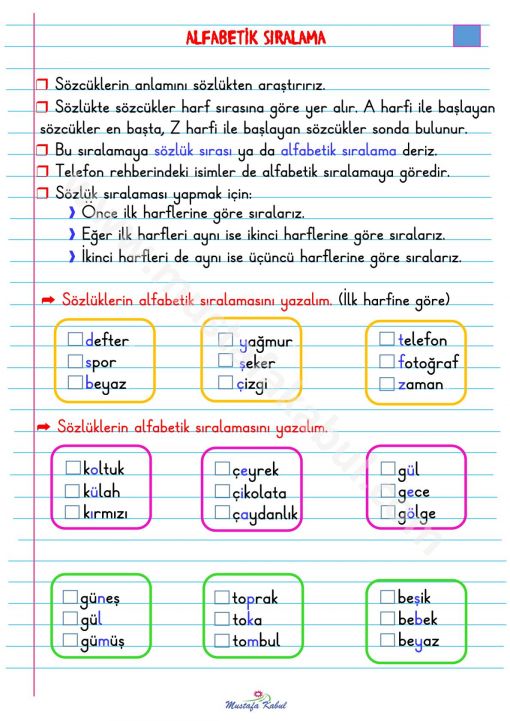 ALFABETİK SIRALAMA
Sözcüklerin anlamını sözlükten araştırırız.
Sözlükte sözcükler harf sırasına göre yer alır. A harfi ile başlayan
sözcükler en başta, Z harfi ile başlayan sözcükler sonda bulunur.
Bu sıralamaya sözlük sırası ya da alfabetik sıralama deriz.
Telefon rehberindeki isimler de alfabetik sıralamaya göredir.
Sözlük sıralaması yapmak için:
Önce ilk harflerine göre sıralarız.
Eğer ilk harfleri aynı ise ikinci harflerine göre sıralarız.
İkinci harfleri de aynı ise üçüncü harflerine göre sıralarız.
Sözlüklerin alfabetik sıralamasını yazalım. (İlk harfine göre)
defter
spor
beyaz
yağmur
şeker
çizgi
telefon
fotoğraf
zaman
Sözlüklerin alfabetik sıralamasını yazalım.
koltuk
külah
kırmızı
çeyrek
çikolata
çaydanlık
gül
gece
gölge
güneş
gül
gümüş
toprak
toka
tombul
beşik
bebek
beyaz
Mustafa Kabul